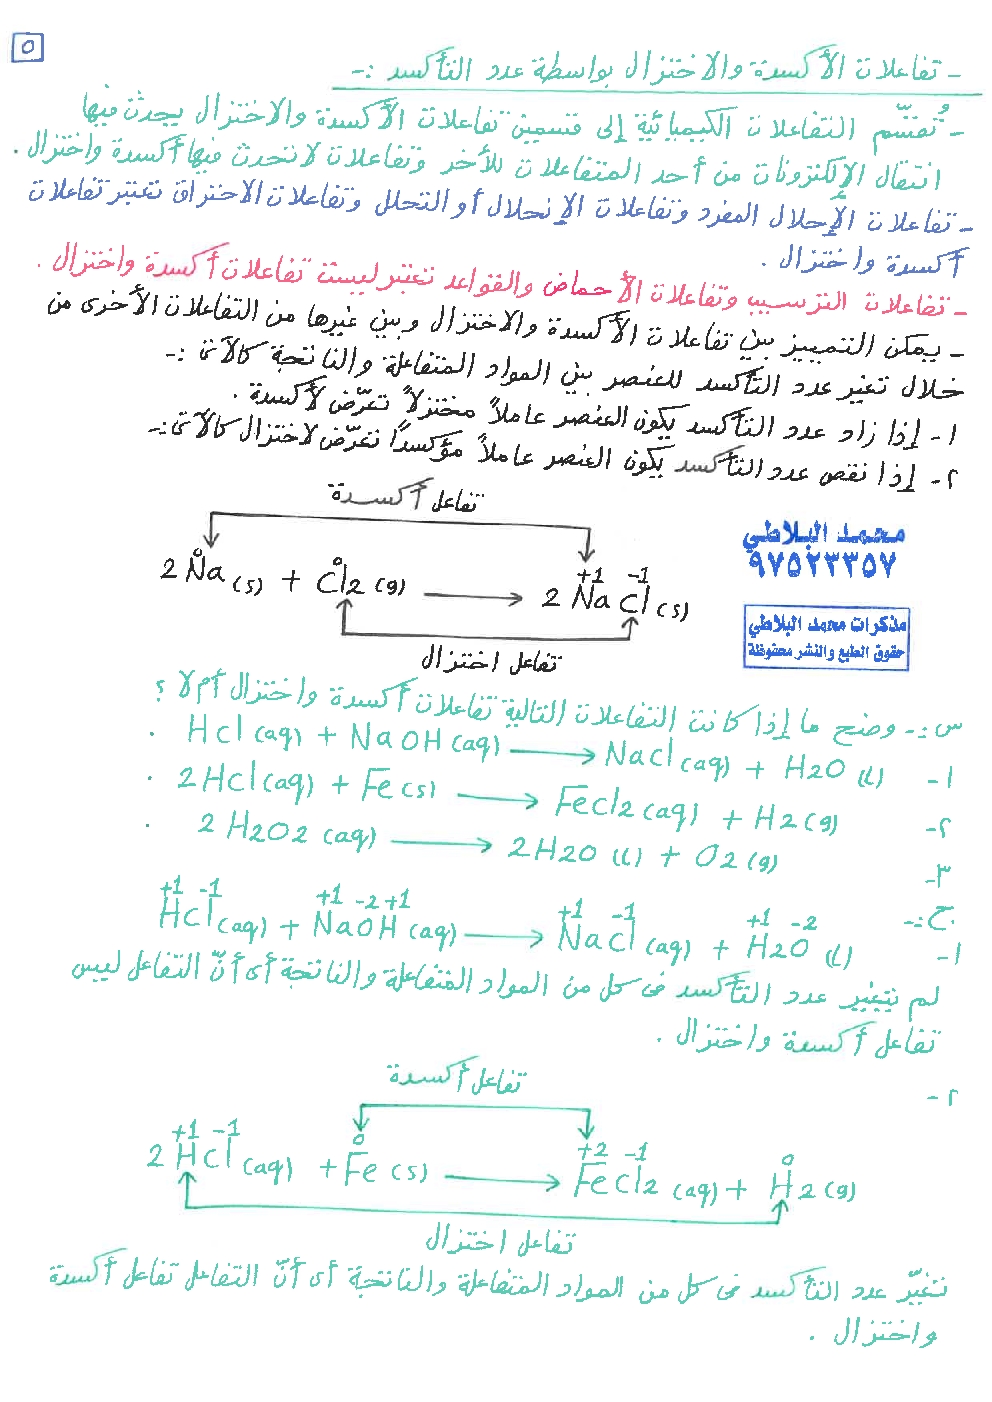 ٥
- تفاعلات الأكسدة والاختزال بواسطة عدد التأكسد :-
- تُقسّم التفاعلات الكيميائية إلى قسمين تفاعلات الأكسدة والاختزال يحدث فيها
انتقال الإلكترونات من أحد المتفاعلات للأخر وتفاعلات لا تحدث فيها أكسدة واختزال .
- تفاعلات الإحلال المفرد وتفاعلات الإنحلال أو التحلل وتفاعلات الاحتراق تعتبر تفاعلات
أكسدة واختزال .
- تفاعلات الترسيب وتفاعلات الأحماض والقواعد تعتبر ليست تفاعلات أكسدة واختزال .
- يمكن التمييز بين تفاعلات الأكسدة والاختزال وبين غيرها من التفاعلات الأخرى من
خلال تغير عدد التأكسد للعنصر بين المواد المتفاعلة والناتجة كالآتى :-
١- إذا زاد عدد التأكسد يكون العنصر عاملاً مختزلاً تعرّض لأكسدة .
٢- إذا نقص عدد التأكسد يكون العنصر عاملاً مؤكسداً تعرّض لاختزال كالآتى :-
تفاعل أكسدة
0 0 +1 -1
2 Na (s) + Cl2 (g) ⟶ 2 NaCl (s)
تفاعل اختزال
محمد البلاطي
٩٧٥٢٣٣٥٧
مذكرات محمد البلاطي
حقوق الطبع والنشر محفوظة
س :- وضح ما إذا كانت التفاعلات التالية تفاعلات أكسدة واختزال أم لا ؟
١- HCl (aq) + NaOH (aq) ⟶ NaCl (aq) + H2O (l) .
٢- 2HCl (aq) + Fe (s) ⟶ FeCl2 (aq) + H2 (g) .
٣- 2 H2O2 (aq) ⟶ 2H2O (l) + O2 (g) .
ج :-
+1 -1 +1 -2 +1 +1 -1 +1 -2
١- HCl (aq) + NaOH (aq) ⟶ NaCl (aq) + H2O (l)
لم يتغير عدد التأكسد فى كل من المواد المتفاعلة والناتجة أى أنّ التفاعل ليس
تفاعل أكسدة واختزال .
٢-
تفاعل أكسدة
+1 -1 0 +2 -1 0
2 HCl (aq) + Fe (s) ⟶ FeCl2 (aq) + H2 (g)
تفاعل اختزال
تغيّر عدد التأكسد فى كل من المواد المتفاعلة والناتجة أى أنّ التفاعل تفاعل أكسدة
واختزال .